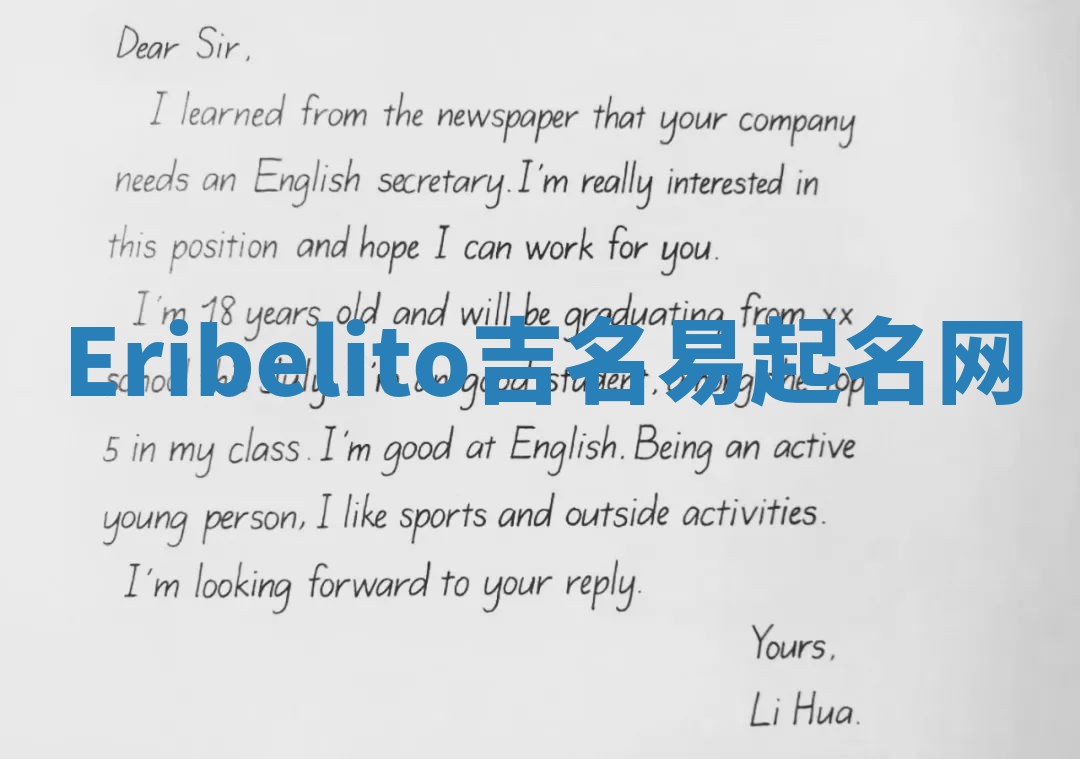 Dear Sir,
I learned from the newspaper that your company
needs an English secretary. I'm really interested in
this position and hope I can work for you.
I'm 18 years old and will be graduating from xx
Eribelito吉名易起名网
school this July. I'm an good student, among the top
5 in my class. I'm good at English. Being an active
young person, I like sports and outside activities.
I'm looking forward to your reply.
Yours,
Li Hua.